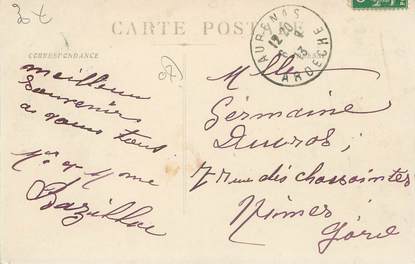 CARTE POSTALE
CORRESPONDANCE
AUBENAS
12 10
13
ARDECHE
meilleurs
souvenirs
à vous tous
Mr et Mme
Melle
Germaine
Ducros
7 rue des chassaintes
Nimes
Gard